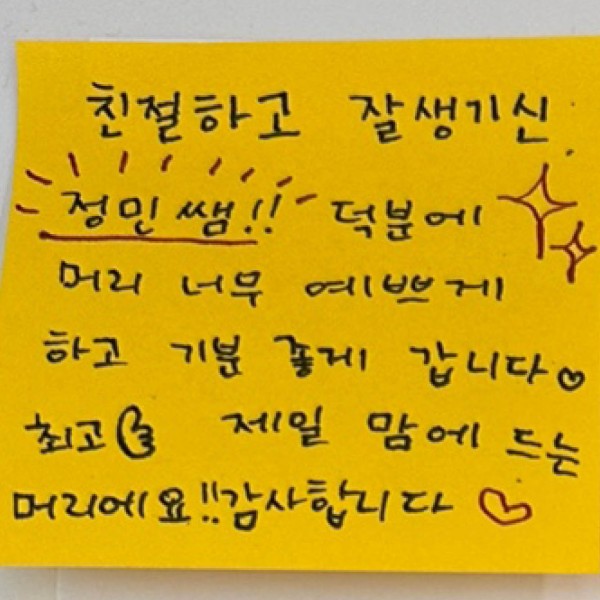 친절하고 잘생기신
정민 쌤!! 덕분에
머리 너무 예쁘게
하고 기분 좋게 갑니다♡
최고👍 제일 맘에 드는
머리에요!!감사합니다 ♡